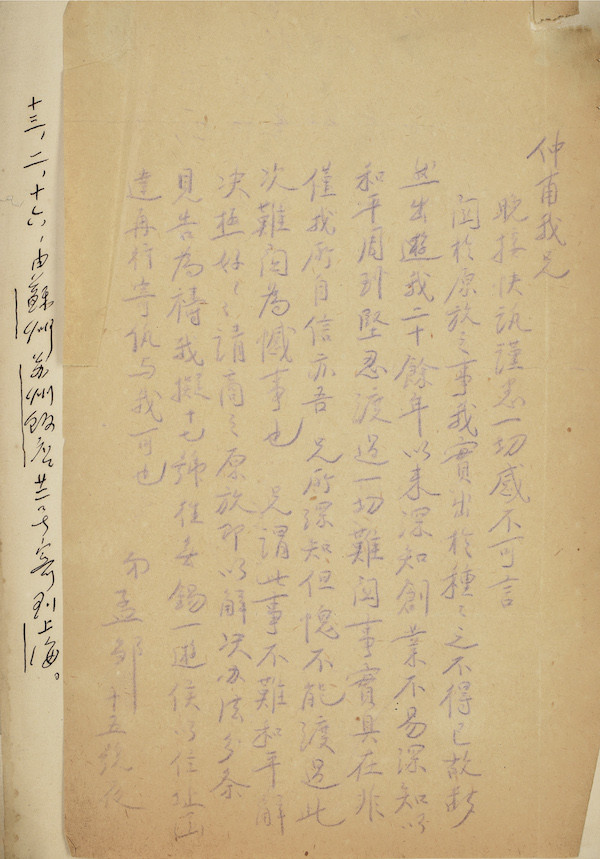 仲甫我兄
晚接快訊謹悉一切感不可言
關於原放之事我實出於種々之不得已故毅
然出遊我二十餘年以來深知創業不易深知以
和平周到堅忍渡過一切難關事實具在非
僅我所自信亦吾 兄所深知但愧不能渡過此
次難關為憾事也 兄謂此事不難和平解
決極好々々請商之原放即以解決办法分条
見告為禱我擬十七號往無錫一遊俟以住址函
達再行寄仇与我可也
弟孟鄒 十五號夜
十三,二,十六,由蘇州苏州飯店廿二号寄到上海。